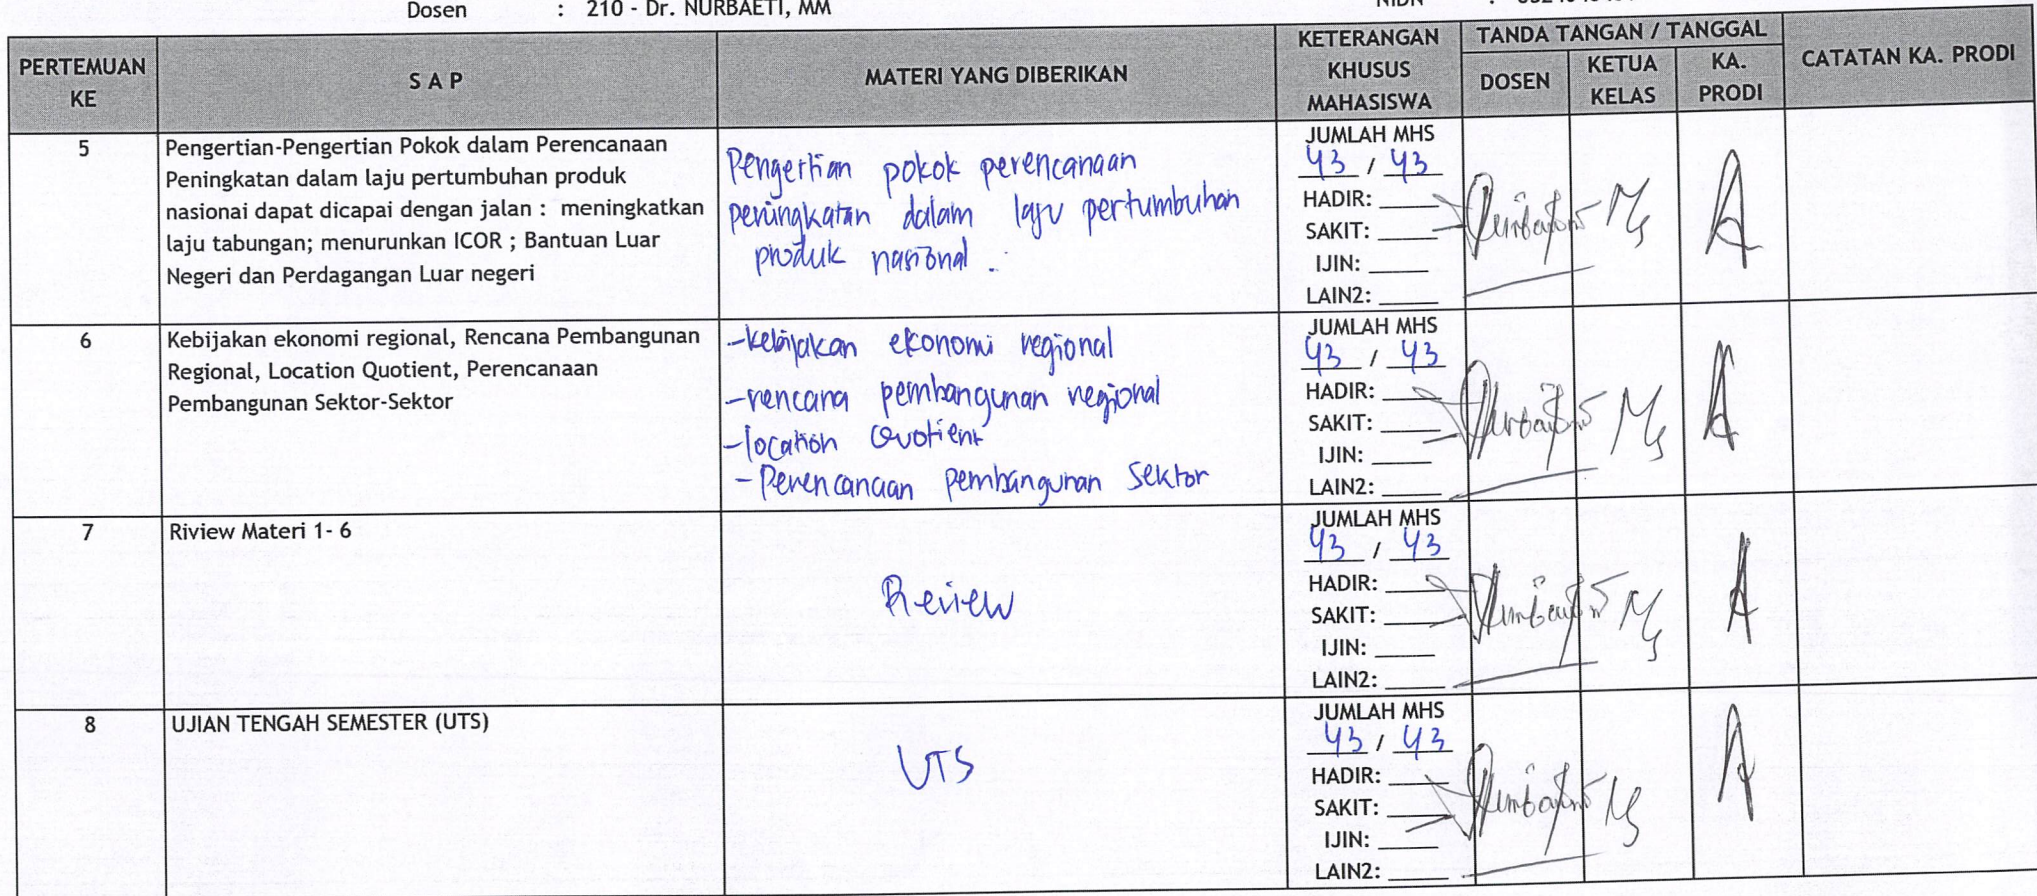 Dosen : 210 - Dr. NURBAETI, MM
NIDN :
PERTEMUAN KE
S A P
MATERI YANG DIBERIKAN
KETERANGAN KHUSUS MAHASISWA
TANDA TANGAN / TANGGAL
DOSEN
KETUA KELAS
KA. PRODI
CATATAN KA. PRODI
5
Pengertian-Pengertian Pokok dalam Perencanaan
Peningkatan dalam laju pertumbuhan produk
nasionai dapat dicapai dengan jalan : meningkatkan
laju tabungan; menurunkan ICOR ; Bantuan Luar
Negeri dan Perdagangan Luar negeri
Pengertian pokok perencanaan
peningkatan dalam laju pertumbuhan
produk nasional .
JUMLAH MHS
43 / 43
HADIR:
SAKIT:
IJIN:
LAIN2:
6
Kebijakan ekonomi regional, Rencana Pembangunan
Regional, Location Quotient, Perencanaan
Pembangunan Sektor-Sektor
-kebijakan ekonomi regional
-rencana pembangunan regional
-location Quotient
-Perencanaan pembangunan Sektor
JUMLAH MHS
43 / 43
HADIR:
SAKIT:
IJIN:
LAIN2:
7
Riview Materi 1- 6
Review
JUMLAH MHS
43 / 43
HADIR:
SAKIT:
IJIN:
LAIN2:
8
UJIAN TENGAH SEMESTER (UTS)
UTS
JUMLAH MHS
43 / 43
HADIR:
SAKIT:
IJIN:
LAIN2: